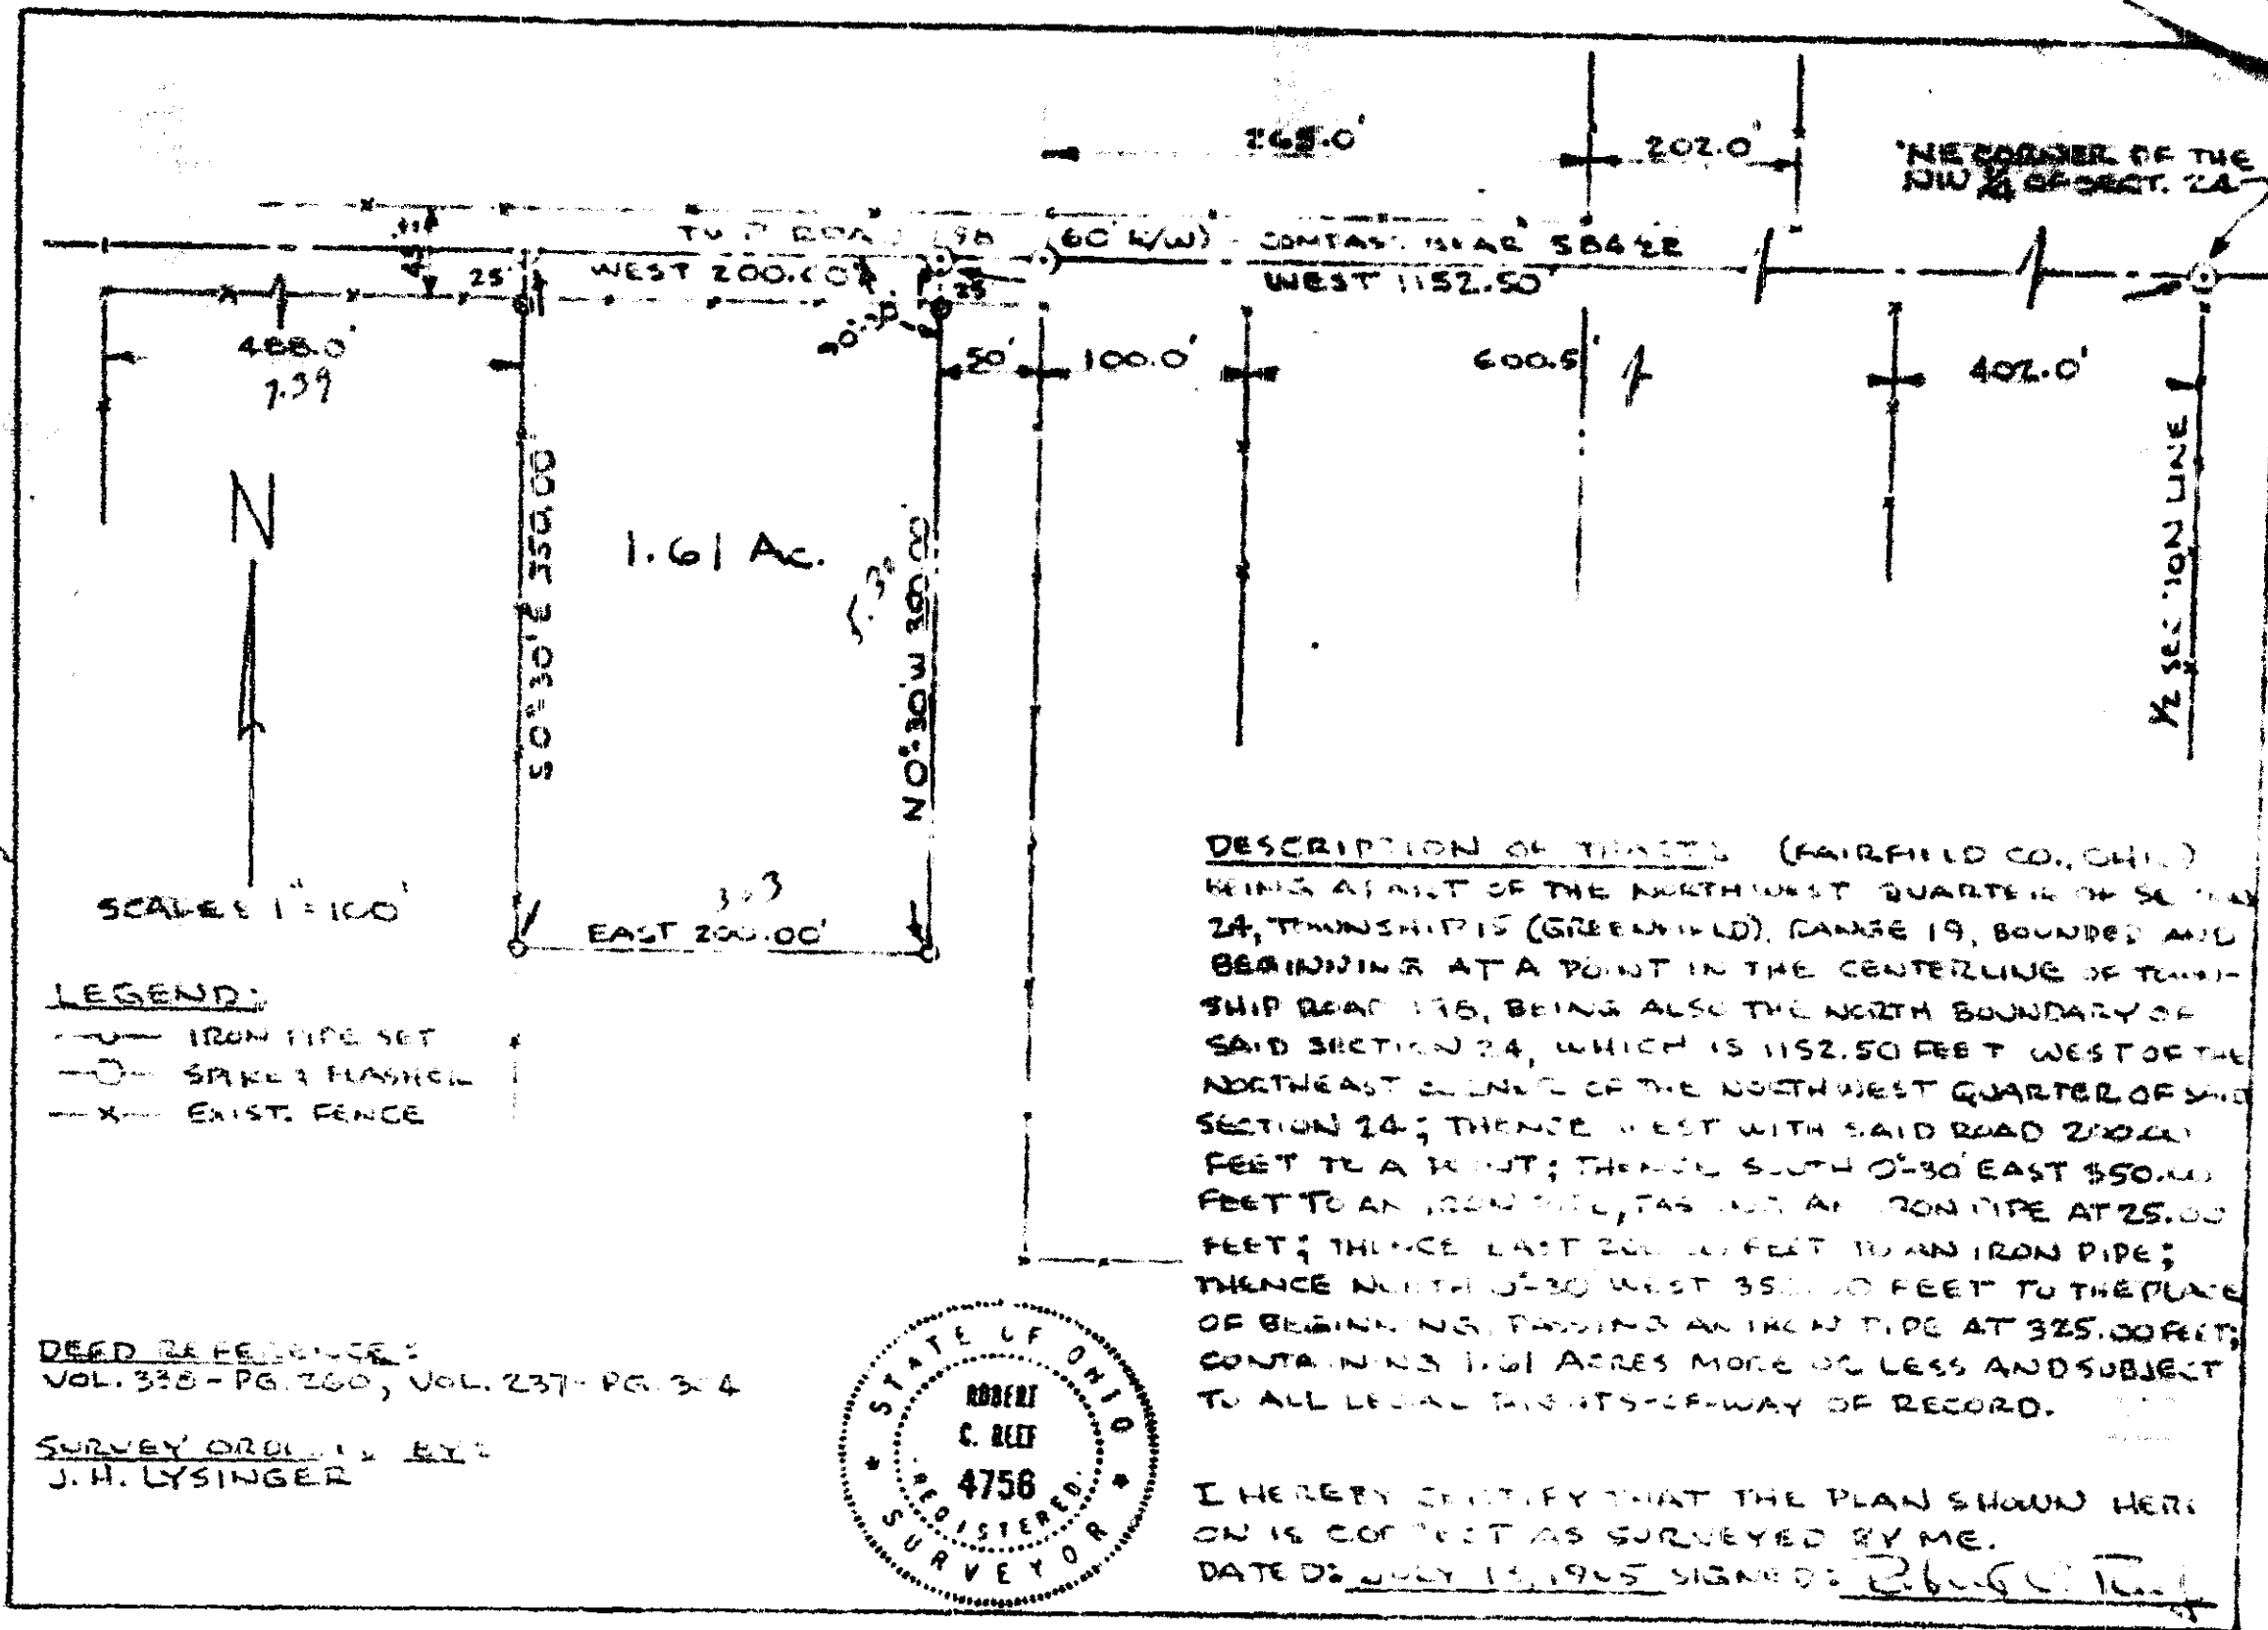 265.0'
202.0'
NE CORNER OF THE
NW ¼ OF SECT. 24
(60' R/W) COMPASS BEAR S84½E
25'
WEST 200.00'
25
WEST 1152.50'
488.0'
7.39
50'
100.0'
600.5'
402.0'
N
S 0°-30' E 350.00'
1.61 Ac.
5.30
N 0°-30' W
½ SECTION LINE
SCALE: 1" = 100'
EAST 200.00'
LEGEND:
IRON PIPE SET
SPIKE & FLASHER
—x— EXIST. FENCE
DEED REFERENCE:
VOL. 338 - PG. 260, VOL. 237 - PG.
SURVEY ORDERED BY:
J. H. LYSINGER
STATE OF OHIO
ROBERT
C. REEF
4756
REGISTERED
SURVEYOR
DESCRIPTION OF (FAIRFIELD CO., OHIO)
BEING A PART OF THE NORTHWEST QUARTER OF SECTION
24, TOWNSHIP 15 (GREENFIELD), RANGE 19, BOUNDED AND
BEGINNING AT A POINT IN THE CENTERLINE OF TOWN-
SHIP ROAD BEING ALSO THE NORTH BOUNDARY OF
SAID SECTION 24, WHICH IS 1152.50 FEET WEST OF THE
NORTHEAST CORNER OF THE NORTHWEST QUARTER OF SAID
SECTION 24; THENCE WEST WITH SAID ROAD 200.00
FEET TO A POINT; THENCE SOUTH 0°-30' EAST 350.00
FEET TO AN IRON PIPE, PASSING AN IRON PIPE AT 25.00
FEET; THENCE EAST 200.00 FEET TO AN IRON PIPE;
THENCE NORTH 0°-30' WEST 350.00 FEET TO THE PLACE
OF BEGINNING, PASSING AN IRON PIPE AT 325.00 FEET;
CONTAINING 1.61 ACRES MORE OR LESS AND SUBJECT
TO ALL LEGAL RIGHTS-OF-WAY OF RECORD.
I HEREBY CERTIFY THAT THE PLAN SHOWN HERE
ON IS CORRECT AS SURVEYED BY ME.
DATED: JULY SIGNED: